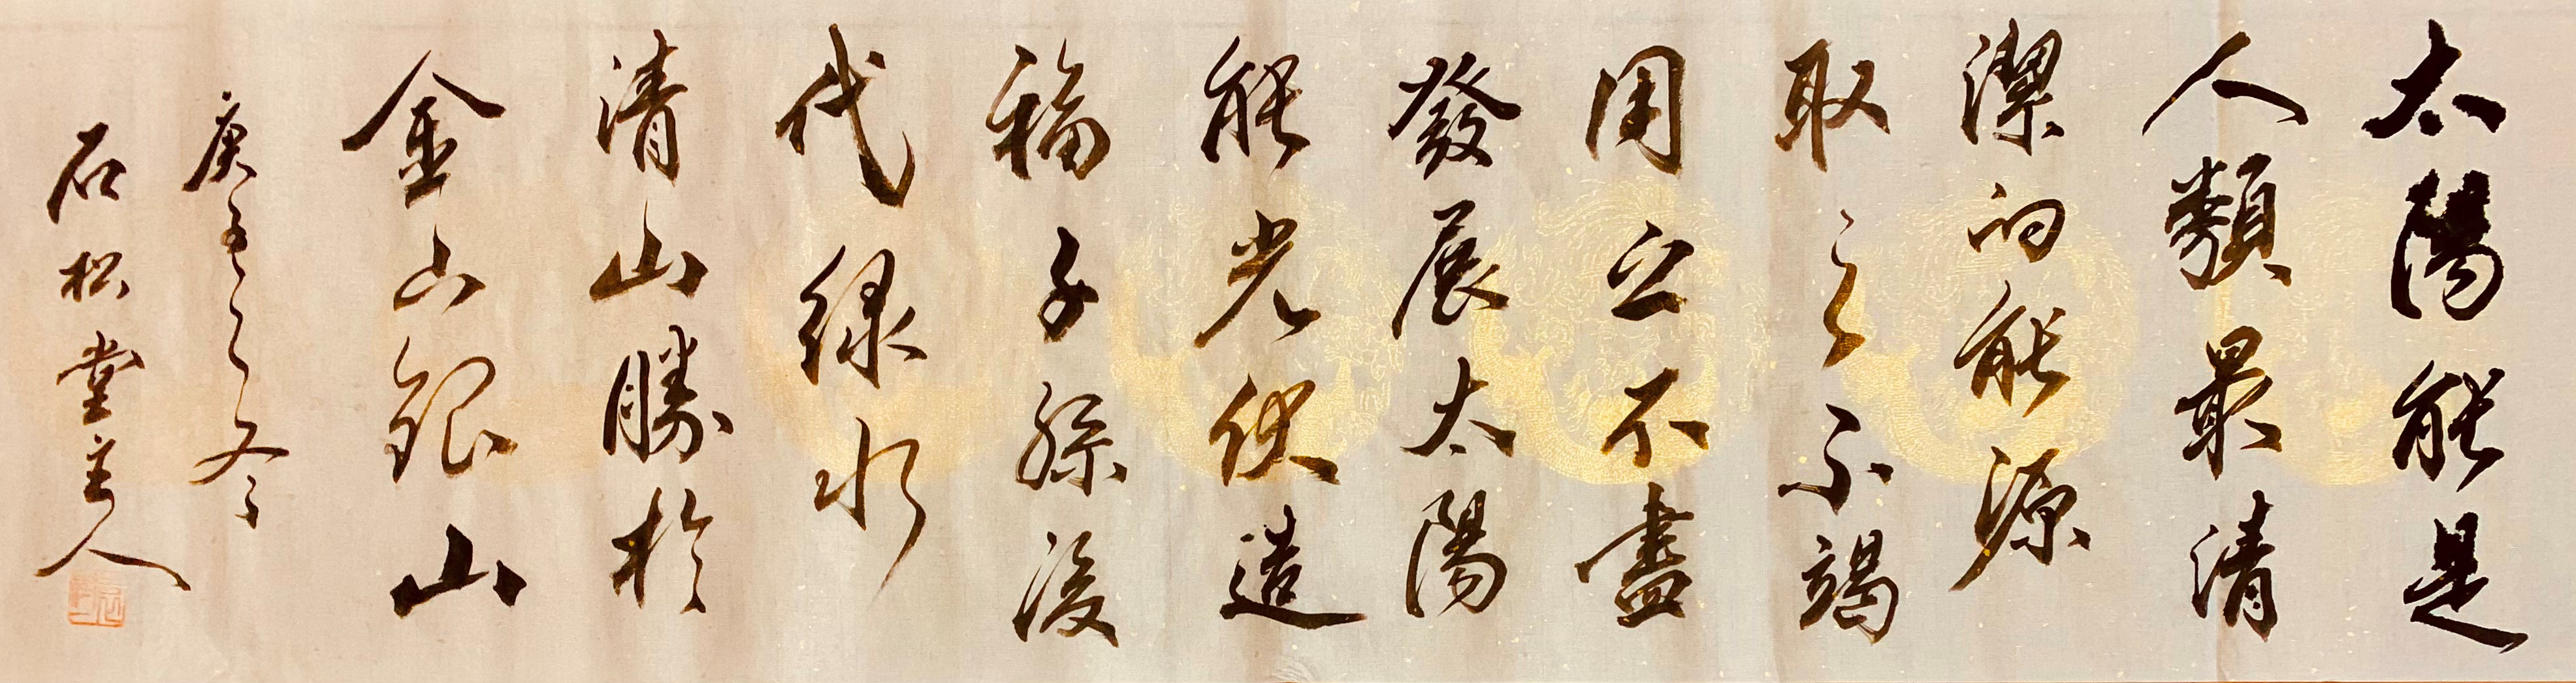 太陽能是
人類最清
潔的能源
取之不竭
用之不盡
發展太陽
能光伏造
福子孫後
代綠水
清山勝於
金山銀山
庚之冬
石松堂主人